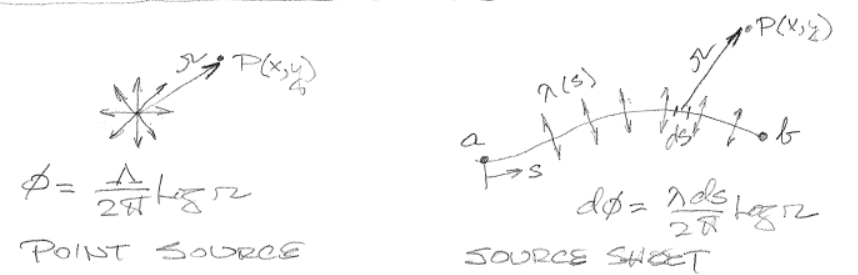 r P(x,y)
φ = Λ/2π log r
POINT SOURCE
r P(x,y)
λ(s)
a ds b
s
dφ = λds/2π log r
SOURCE SHEET